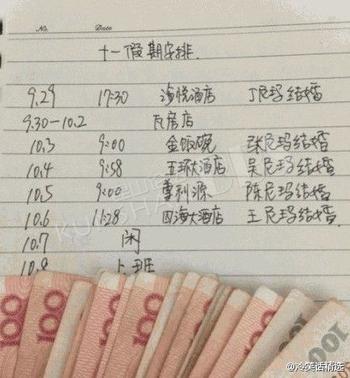 No.
Date
十一假期安排.
9.29 17:30 海悦酒店 丁尼玛结婚
9.30-10.2 瓦房店
10.3 9:00 金饭碗 张尼玛结婚
10.4 9:58 王珎大酒店 吴尼玛结婚
10.5 9:00 喜利源 陈尼玛结婚
10.6 11:28 四海大酒店 王尼玛结婚
10.7 闲
10.8 上班
100 100 100 100
@冷笑话精选